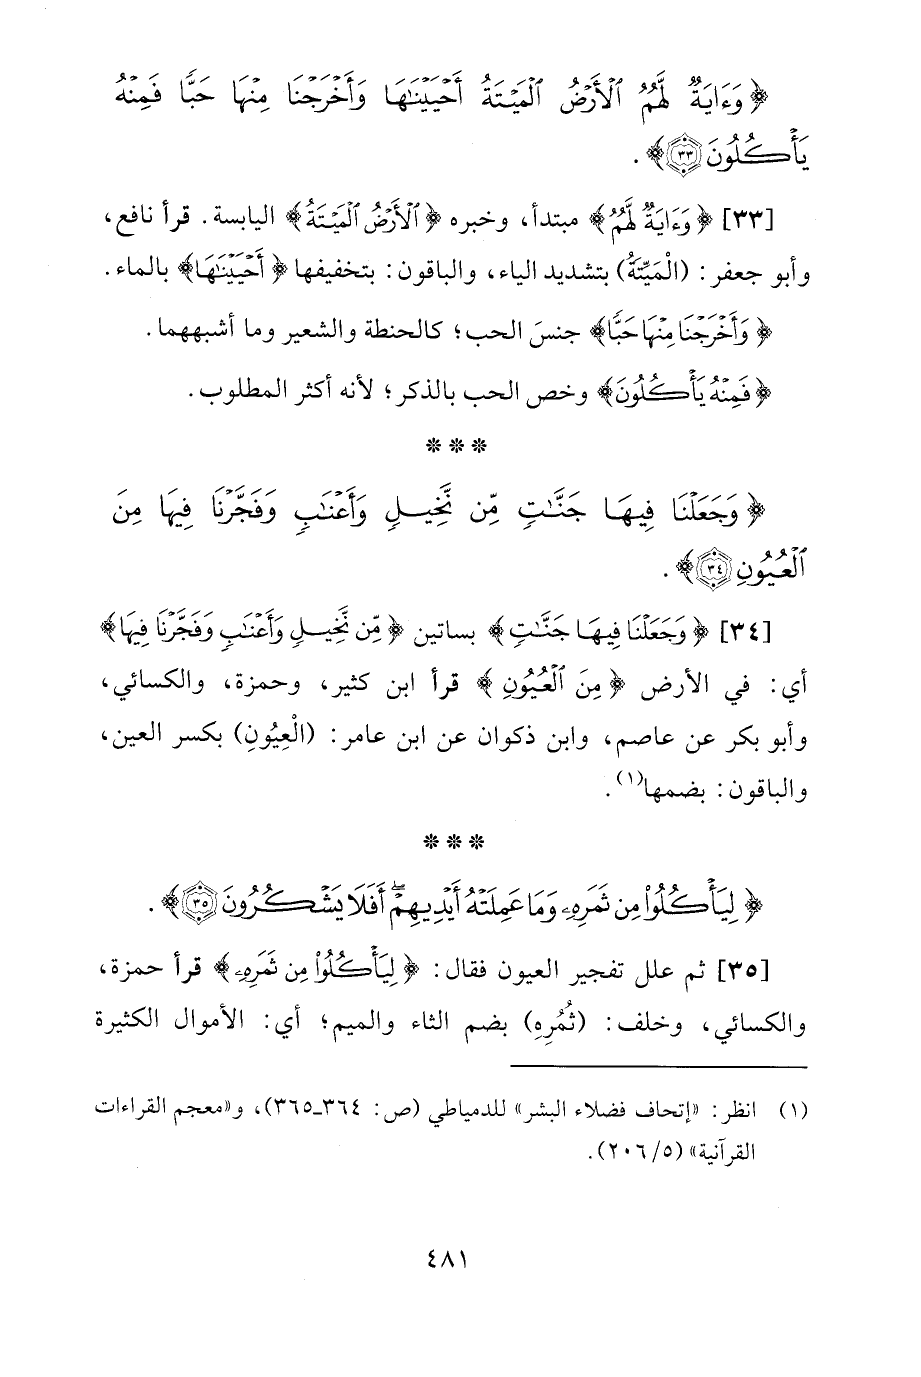 ﴿ وَءَايَةٌ لَّهُمُ ٱلْأَرْضُ ٱلْمَيْتَةُ أَحْيَيْنَٰهَا وَأَخْرَجْنَا مِنْهَا حَبًّا فَمِنْهُ
يَأْكُلُونَ ٣٣﴾ .
[٣٣] ﴿ وَءَايَةٌ لَّهُمُ﴾ مبتدأ، وخبره ﴿ ٱلْأَرْضُ ٱلْمَيْتَةُ﴾ اليابسة. قرأ نافع،
وأبو جعفر: (الْمَيِّتَةُ) بتشديد الياء، والباقون: بتخفيفها ﴿ أَحْيَيْنَٰهَا﴾ بالماء.
﴿ وَأَخْرَجْنَا مِنْهَا حَبًّا﴾ جنسَ الحب؛ كالحنطة والشعير وما أشبههما.
﴿ فَمِنْهُ يَأْكُلُونَ﴾ وخص الحب بالذكر؛ لأنه أكثر المطلوب.
* * *
﴿ وَجَعَلْنَا فِيهَا جَنَّٰتٍ مِّن نَّخِيلٍ وَأَعْنَٰبٍ وَفَجَّرْنَا فِيهَا مِنَ
ٱلْعُيُونِ ٣٤﴾ .
[٣٤] ﴿ وَجَعَلْنَا فِيهَا جَنَّٰتٍ﴾ بساتين ﴿ مِّن نَّخِيلٍ وَأَعْنَٰبٍ وَفَجَّرْنَا فِيهَا﴾
أي: في الأرض ﴿ مِنَ ٱلْعُيُونِ ﴾ قرأ ابن كثير، وحمزة، والكسائي،
وأبو بكر عن عاصم، وابن ذكوان عن ابن عامر: (الْعِيُونِ) بكسر العين،
والباقون: بضمها(١).
* * *
﴿ لِيَأْكُلُوا۟ مِن ثَمَرِهِۦ وَمَا عَمِلَتْهُ أَيْدِيهِمْ ۖ أَفَلَا يَشْكُرُونَ ٣٥﴾ .
[٣٥] ثم علل تفجير العيون فقال: ﴿ لِيَأْكُلُوا۟ مِن ثَمَرِهِۦ ﴾ قرأ حمزة،
والكسائي، وخلف: (ثُمُرِهِ) بضم الثاء والميم؛ أي: الأموال الكثيرة
(١) انظر: «إتحاف فضلاء البشر» للدمياطي (ص: ٣٦٤ـ٣٦٥)، و«معجم القراءات
القرآنية» (٥/ ٢٠٦).
٤٨١